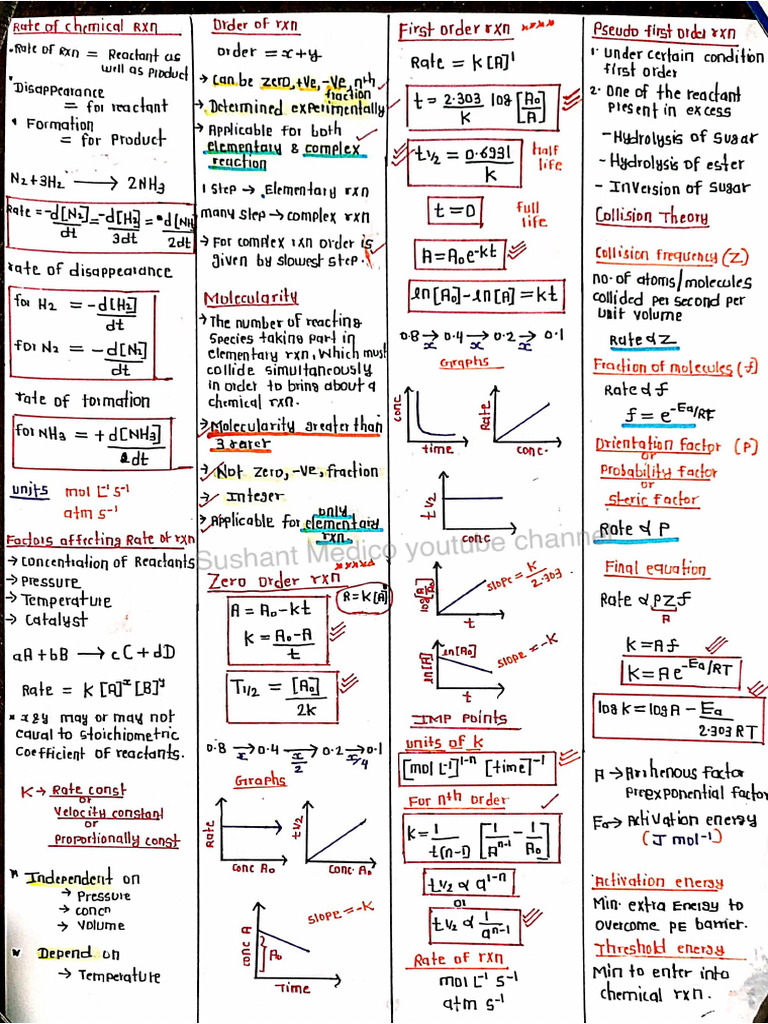 Rate of chemical Rxn
• Rate of Rxn = Reactant as
well as product
• Disappearance
= for reactant
• Formation
= for Product
N2+3H2 → 2NH3
Rate = -d[N2]/dt = -d[H2]/3dt = d[NH3]/2dt
rate of disappearance
for H2 = -d[H2]/dt
for N2 = -d[N2]/dt
rate of formation
for NH3 = +d[NH3]/2dt
units mol L⁻¹ s⁻¹
atm s⁻¹
Factors affecting Rate of rxn
→ Concentration of Reactants
→ Pressure
→ Temperature
→ Catalyst
aA+bB → cC+dD
Rate = K [A]ˣ [B]ʸ
* x & y may or may not
equal to stoichiometric
coefficient of reactants.
K → Rate const
or
Velocity constant
or
Proportionally const
* Independent on
→ Pressure
→ concⁿ
→ Volume
* Depend on
→ Temperature
Order of rxn
order = x+y
→ can be zero, +ve, -ve, nth,
fraction
→ Determined experimentally
→ Applicable for both
elementary & complex
reaction
1 step → Elementary rxn
many step → complex rxn
→ For complex rxn order is
given by slowest step.
Molecularity
→ The number of reacting
species taking part in
elementary rxn, which must
collide simultaneously
in order to bring about a
chemical rxn.
→ Molecularity greater than
3 rarer
→ Not zero, -ve, fraction
→ Integer
→ Applicable for only elementary
rxn.
Zero order rxn ****
R=K[A]°
A = A₀ - kt
K = A₀-A/t
T1/2 = [A₀]/2k
0.8 →x 0.4 →x/2 0.2 →x/4 0.1
Graphs
Rate
conc A₀
t1/2
conc. A₀
conc A
A₀
Time
slope = -K
First order rxn ****
Rate = K [A]¹
t = 2.303/K log [A₀]/[A]
t1/2 = 0.6931/K
half
life
t = 0
full
life
A = A₀e⁻ᵏᵗ
ln[A₀] - ln[A] = kt
0.8 →x 0.4 →x 0.2 →x 0.1
Graphs
conc
time
Rate
conc.
t1/2
conc
log[A₀]/[A]
t
slope = K/2.303
ln[A]
ln[A₀]
t
slope = -K
IMP points
units of k
[mol L⁻¹]¹⁻ⁿ [time]⁻¹
For nth order
K = 1/t(n-1) [1/Aⁿ⁻¹ - 1/A₀]
t1/2 ∝ a¹⁻ⁿ
or
t1/2 ∝ 1/aⁿ⁻¹
Rate of rxn
mol L⁻¹ s⁻¹
atm s⁻¹
Pseudo first order rxn
1. Under certain condition
first order
2. One of the reactant
present in excess
- Hydrolysis of sugar
- Hydrolysis of ester
- Inversion of sugar
Collision Theory
Collision frequency (Z)
no. of atoms/molecules
collided per second per
unit volume
Rate ∝ Z
Fraction of molecules (f)
Rate ∝ f
f = e^-Ea/RT
Orientation factor (P)
or
Probability factor
or
steric factor
Rate ∝ P
Final equation
Rate ∝ PZf
A
K = Af
K = Ae^-Ea/RT
log K = log A - Ea/2.303 RT
A → Arrhenous factor
preexponential factor
Ea → Activation energy
(J mol⁻¹)
Activation energy
Min. extra energy to
overcome PE barrier.
Threshold energy
Min to enter into
chemical rxn.
Sushant Medico youtube channel